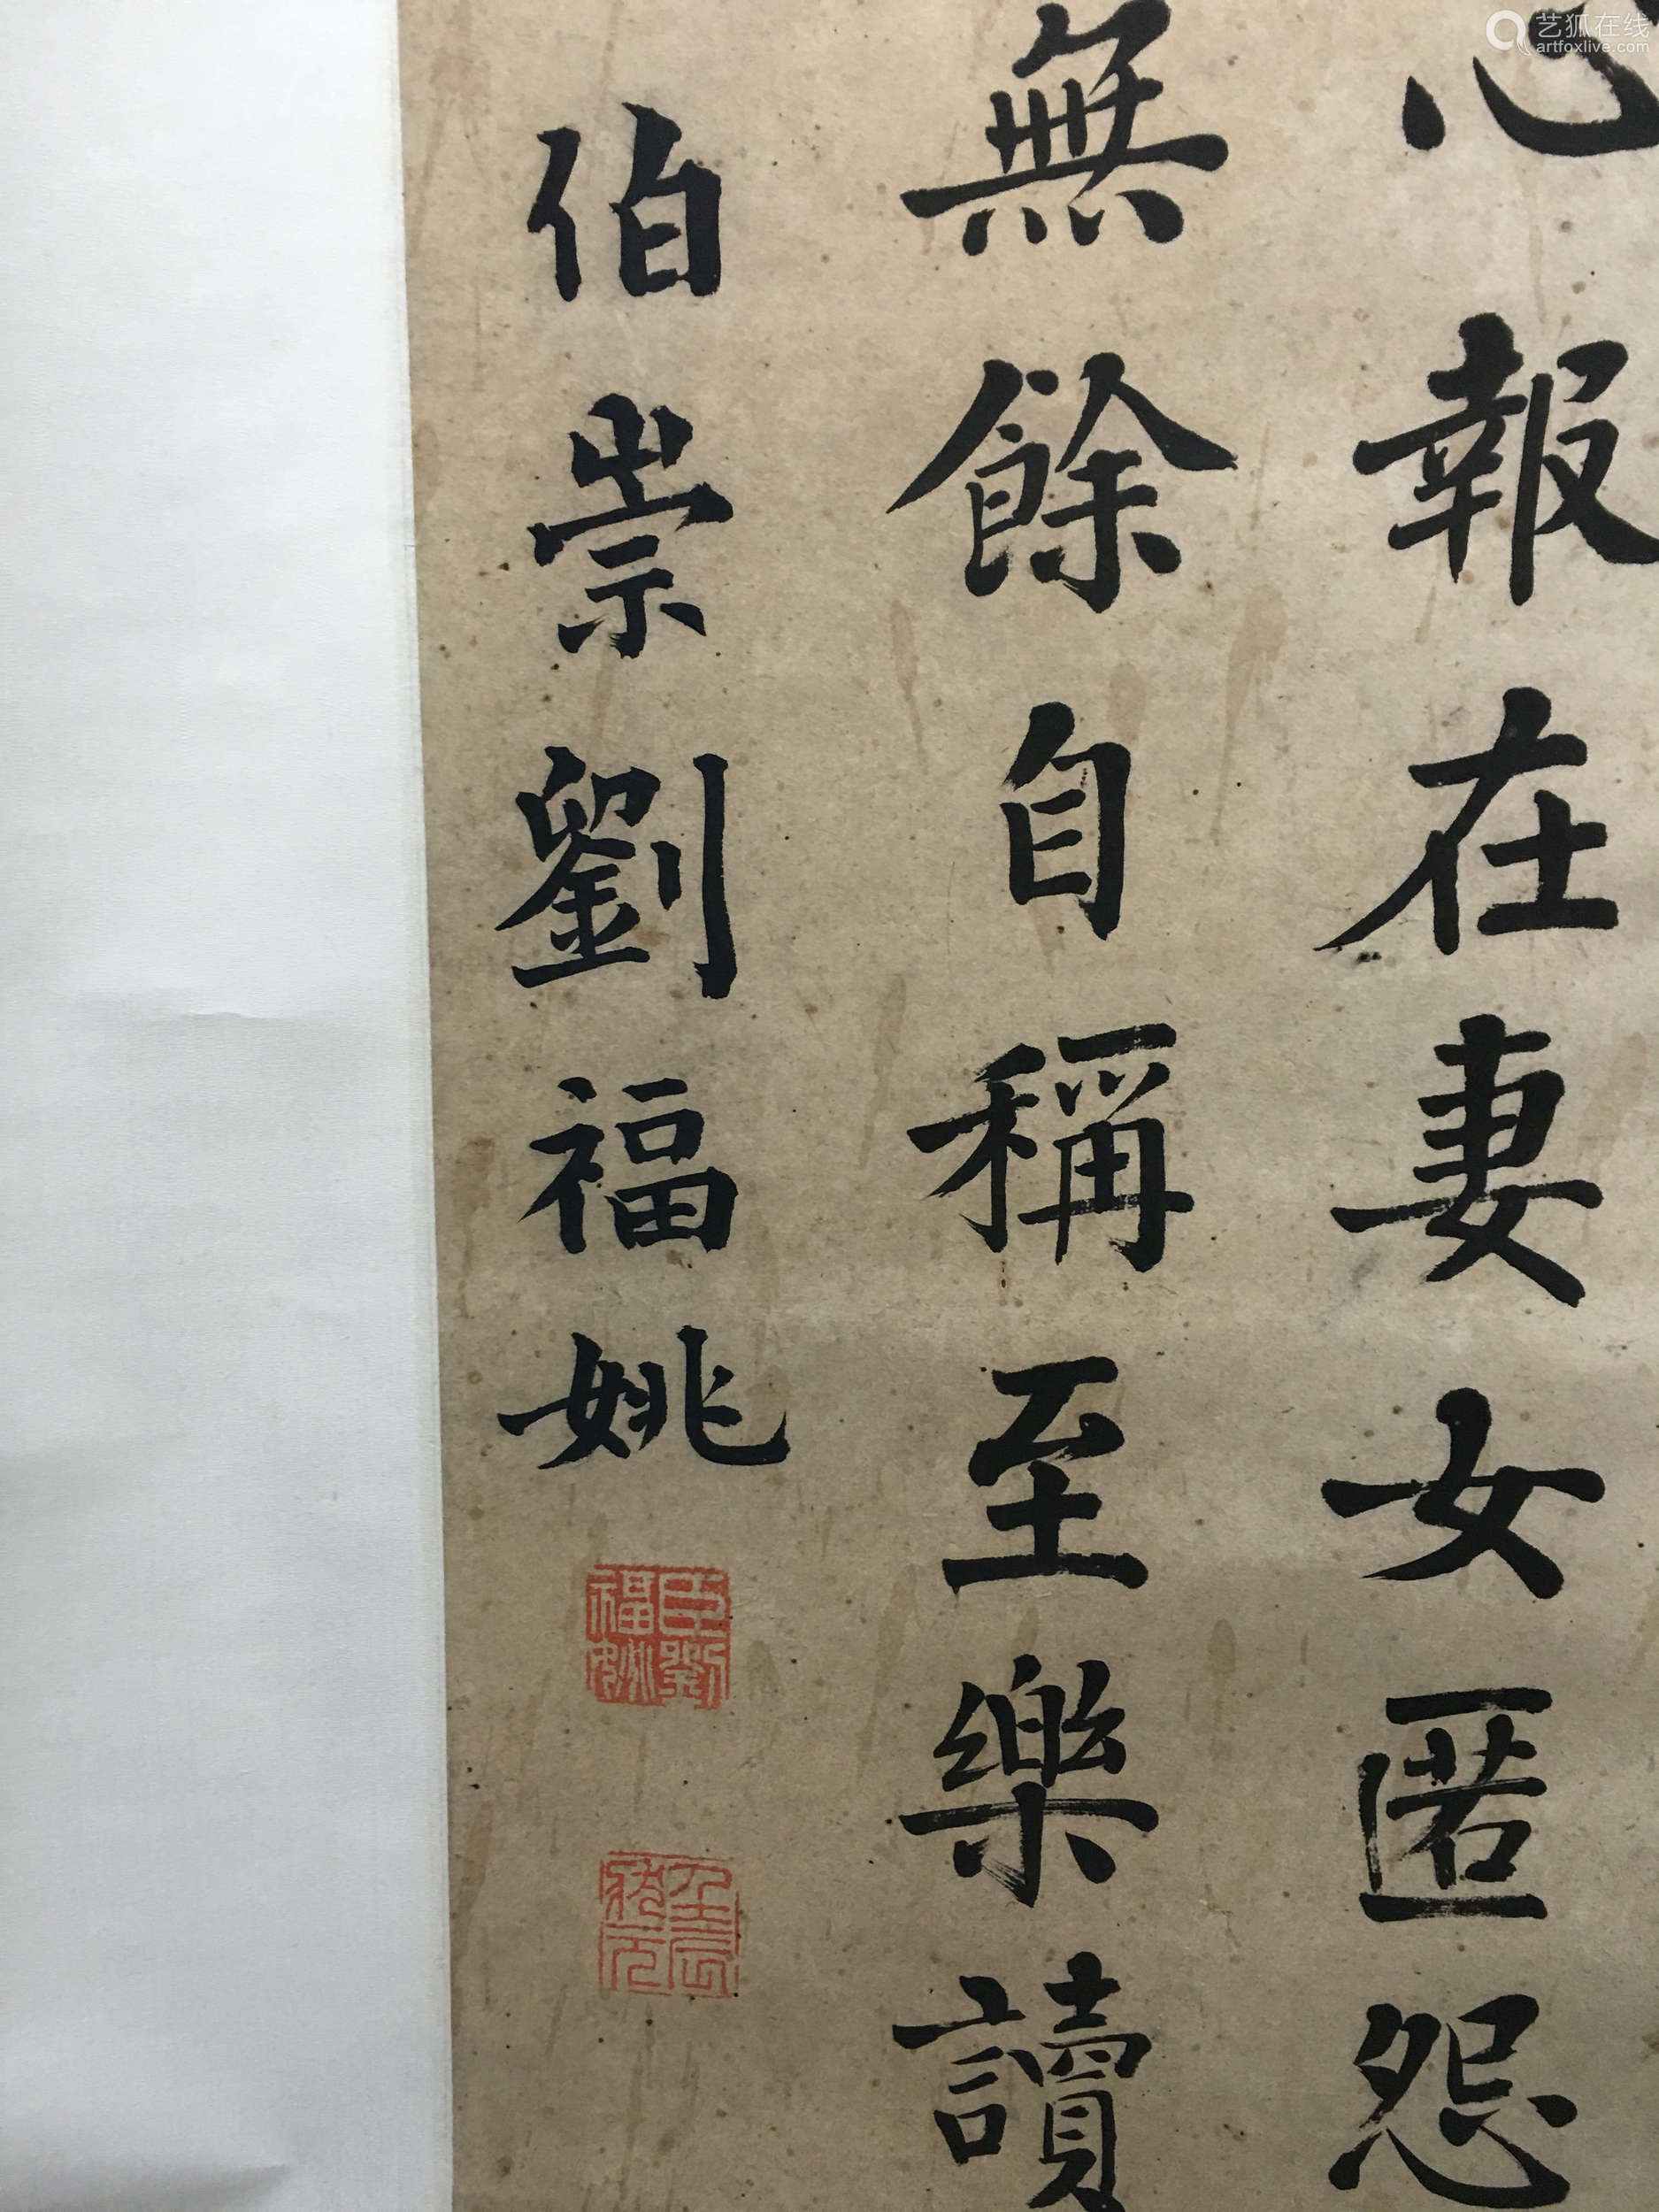 心報在妻女匿怨
無餘自稱至樂讀
伯崇劉福姚
臣劉福姚
艺狐在线
artfoxlive.com